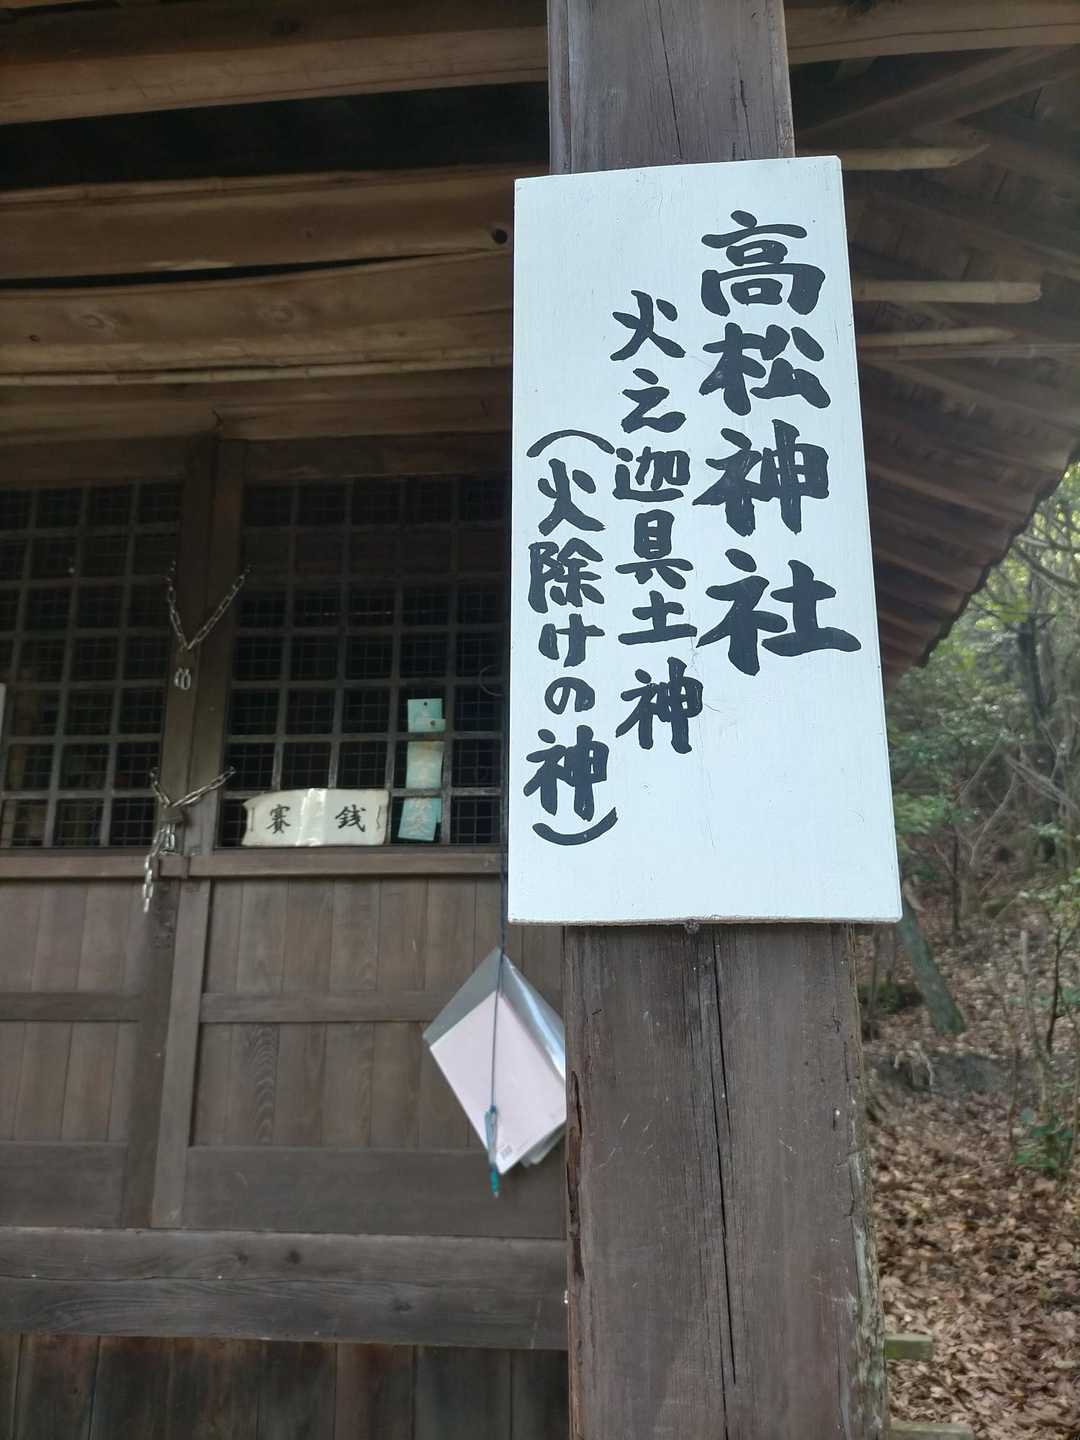 高松神社
火之迦具土神
（火除けの神）
賽銭